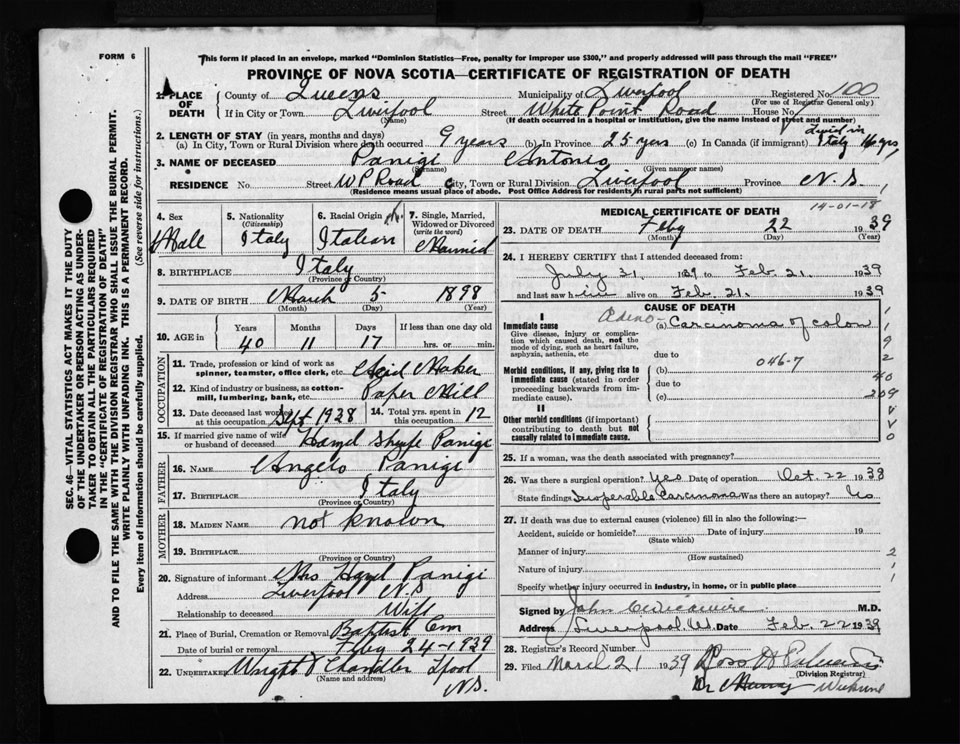 This form if placed in an envelope, marked "Dominion Statistics—Free, penalty for improper use $300," and properly addressed will pass through the mail "FREE"
FORM 6
PROVINCE OF NOVA SCOTIA—CERTIFICATE OF REGISTRATION OF DEATH
SEC. 46—VITAL STATISTICS ACT MAKES IT THE DUTY
OF THE UNDERTAKER OR PERSON ACTING AS UNDER-
TAKER TO OBTAIN ALL THE PARTICULARS REQUIRED
IN THE "CERTIFICATE OF REGISTRATION OF DEATH"
AND TO FILE THE SAME WITH THE DIVISION REGISTRAR WHO SHALL ISSUE THE BURIAL PERMIT.
WRITE PLAINLY WITH UNFADING INK. THIS IS A PERMANENT RECORD.
Every item of information should be carefully supplied. (See reverse side for instructions.)
1. PLACE OF DEATH County of Queens Municipality of Liverpool Registered No. 100
(For use of Registrar General only)
If in City or Town Liverpool (Name) Street White Point Road House No.
(If death occurred in a hospital or institution, give the name instead of street and number)
2. LENGTH OF STAY (in years, months and days) Lived in
(a) In City, Town or Rural Division where death occurred 9 years (b) In Province 25 yers (c) In Canada (if immigrant) Italy 14 yrs
3. NAME OF DECEASED Panigi (Surname) Antonio (Given name or names)
RESIDENCE No. Street W P Road City, Town or Rural Division Liverpool Province N.S.
(Residence means usual place of abode. Post Office Address for residents in rural parts not sufficient)
4. Sex Male
5. Nationality (Citizenship) Italy
6. Racial Origin Italian
7. Single, Married, Widowed or Divorced (write the word) Married
8. BIRTHPLACE Italy
(Province or Country)
9. DATE OF BIRTH March 5 1898
(Month) (Day) (Year)
10. AGE in Years 40 Months 11 Days 17 If less than one day old hrs. or min.
OCCUPATION
11. Trade, profession or kind of work as spinner, teamster, office clerk, etc. Acid Maker
12. Kind of industry or business, as cotton-mill, lumbering, bank, etc. Paper Mill
13. Date deceased last worked at this occupation Sept 1938 14. Total yrs. spent in this occupation 12
15. If married give name of wife or husband of deceased Hazel Panigi
FATHER
16. NAME Angelo Panigi
17. BIRTHPLACE Italy
(Province or Country)
MOTHER
18. MAIDEN NAME not known
19. BIRTHPLACE
(Province or Country)
20. Signature of informant Mrs Hazel Panigi
Address Liverpool N.S
Relationship to deceased Wife
21. Place of Burial, Cremation or Removal Baptist Cem
Date of burial or removal Feby 24-1939
22. UNDERTAKER Wright & Chandler Lpool
(Name and address) N.S.
MEDICAL CERTIFICATE OF DEATH 14-01-18
23. DATE OF DEATH Feby 22 1939
(Month) (Day) (Year)
24. I HEREBY CERTIFY that I attended deceased from:
July 31, 1939 to Feb. 21. 1939
and last saw him alive on Feb. 21. 1939
CAUSE OF DEATH
I
Immediate cause Adeno- (a) Carcinoma of colon
Give disease, injury or complication which caused death, not the mode of dying, such as heart failure, asphyxia, asthenia, etc
due to
Morbid conditions, if any, giving rise to immediate cause (stated in order proceeding backwards from immediate cause). (b) 046-7
due to
(c)
II
Other morbid conditions (if important) contributing to death but not causally related to immediate cause.
1
1
9
2
40
209
V
V
0
25. If a woman, was the death associated with pregnancy?
26. Was there a surgical operation? Yes Date of operation Oct. 22 1938
State findings Inoperable Carcinoma Was there an autopsy? No
27. If death was due to external causes (violence) fill in also the following:—
Accident, suicide or homicide? Date of injury 19
(State which)
Manner of injury
(How sustained)
Nature of injury
Specify whether injury occurred in industry, in home, or in public place
2
1
1
Signed by John M.D.
Address Liverpool Date Feb. 22 1939
28. Registrar's Record Number
29. Filed March 21 1939 Ross
(Division Registrar)
Dr